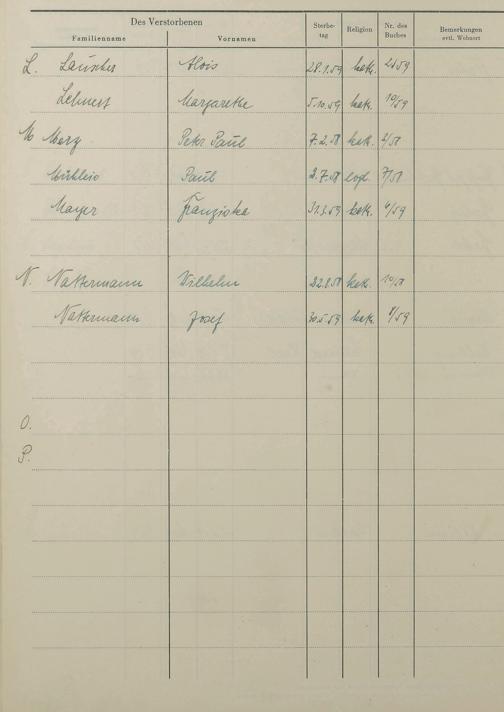 Des Verstorbenen
Familienname Vornamen Sterbe-tag Religion Nr. des Buches Bemerkungen evtl. Wohnort
L. Alois 28.1.59 kath. 2/59
Lehnert Margarethe 5.10.59 kath. 10/59
M Merz Peter Paul 7.2.58 kath. 2/58
Paul 2.7.58 evgl. 7/58
Mayer Franziska 31.3.59 kath. 4/59
N. Nattermann Wilhelm 22.8.58 kath. 10/58
Nattermann Josef 30.5.59 kath. 8/59
O.
P.